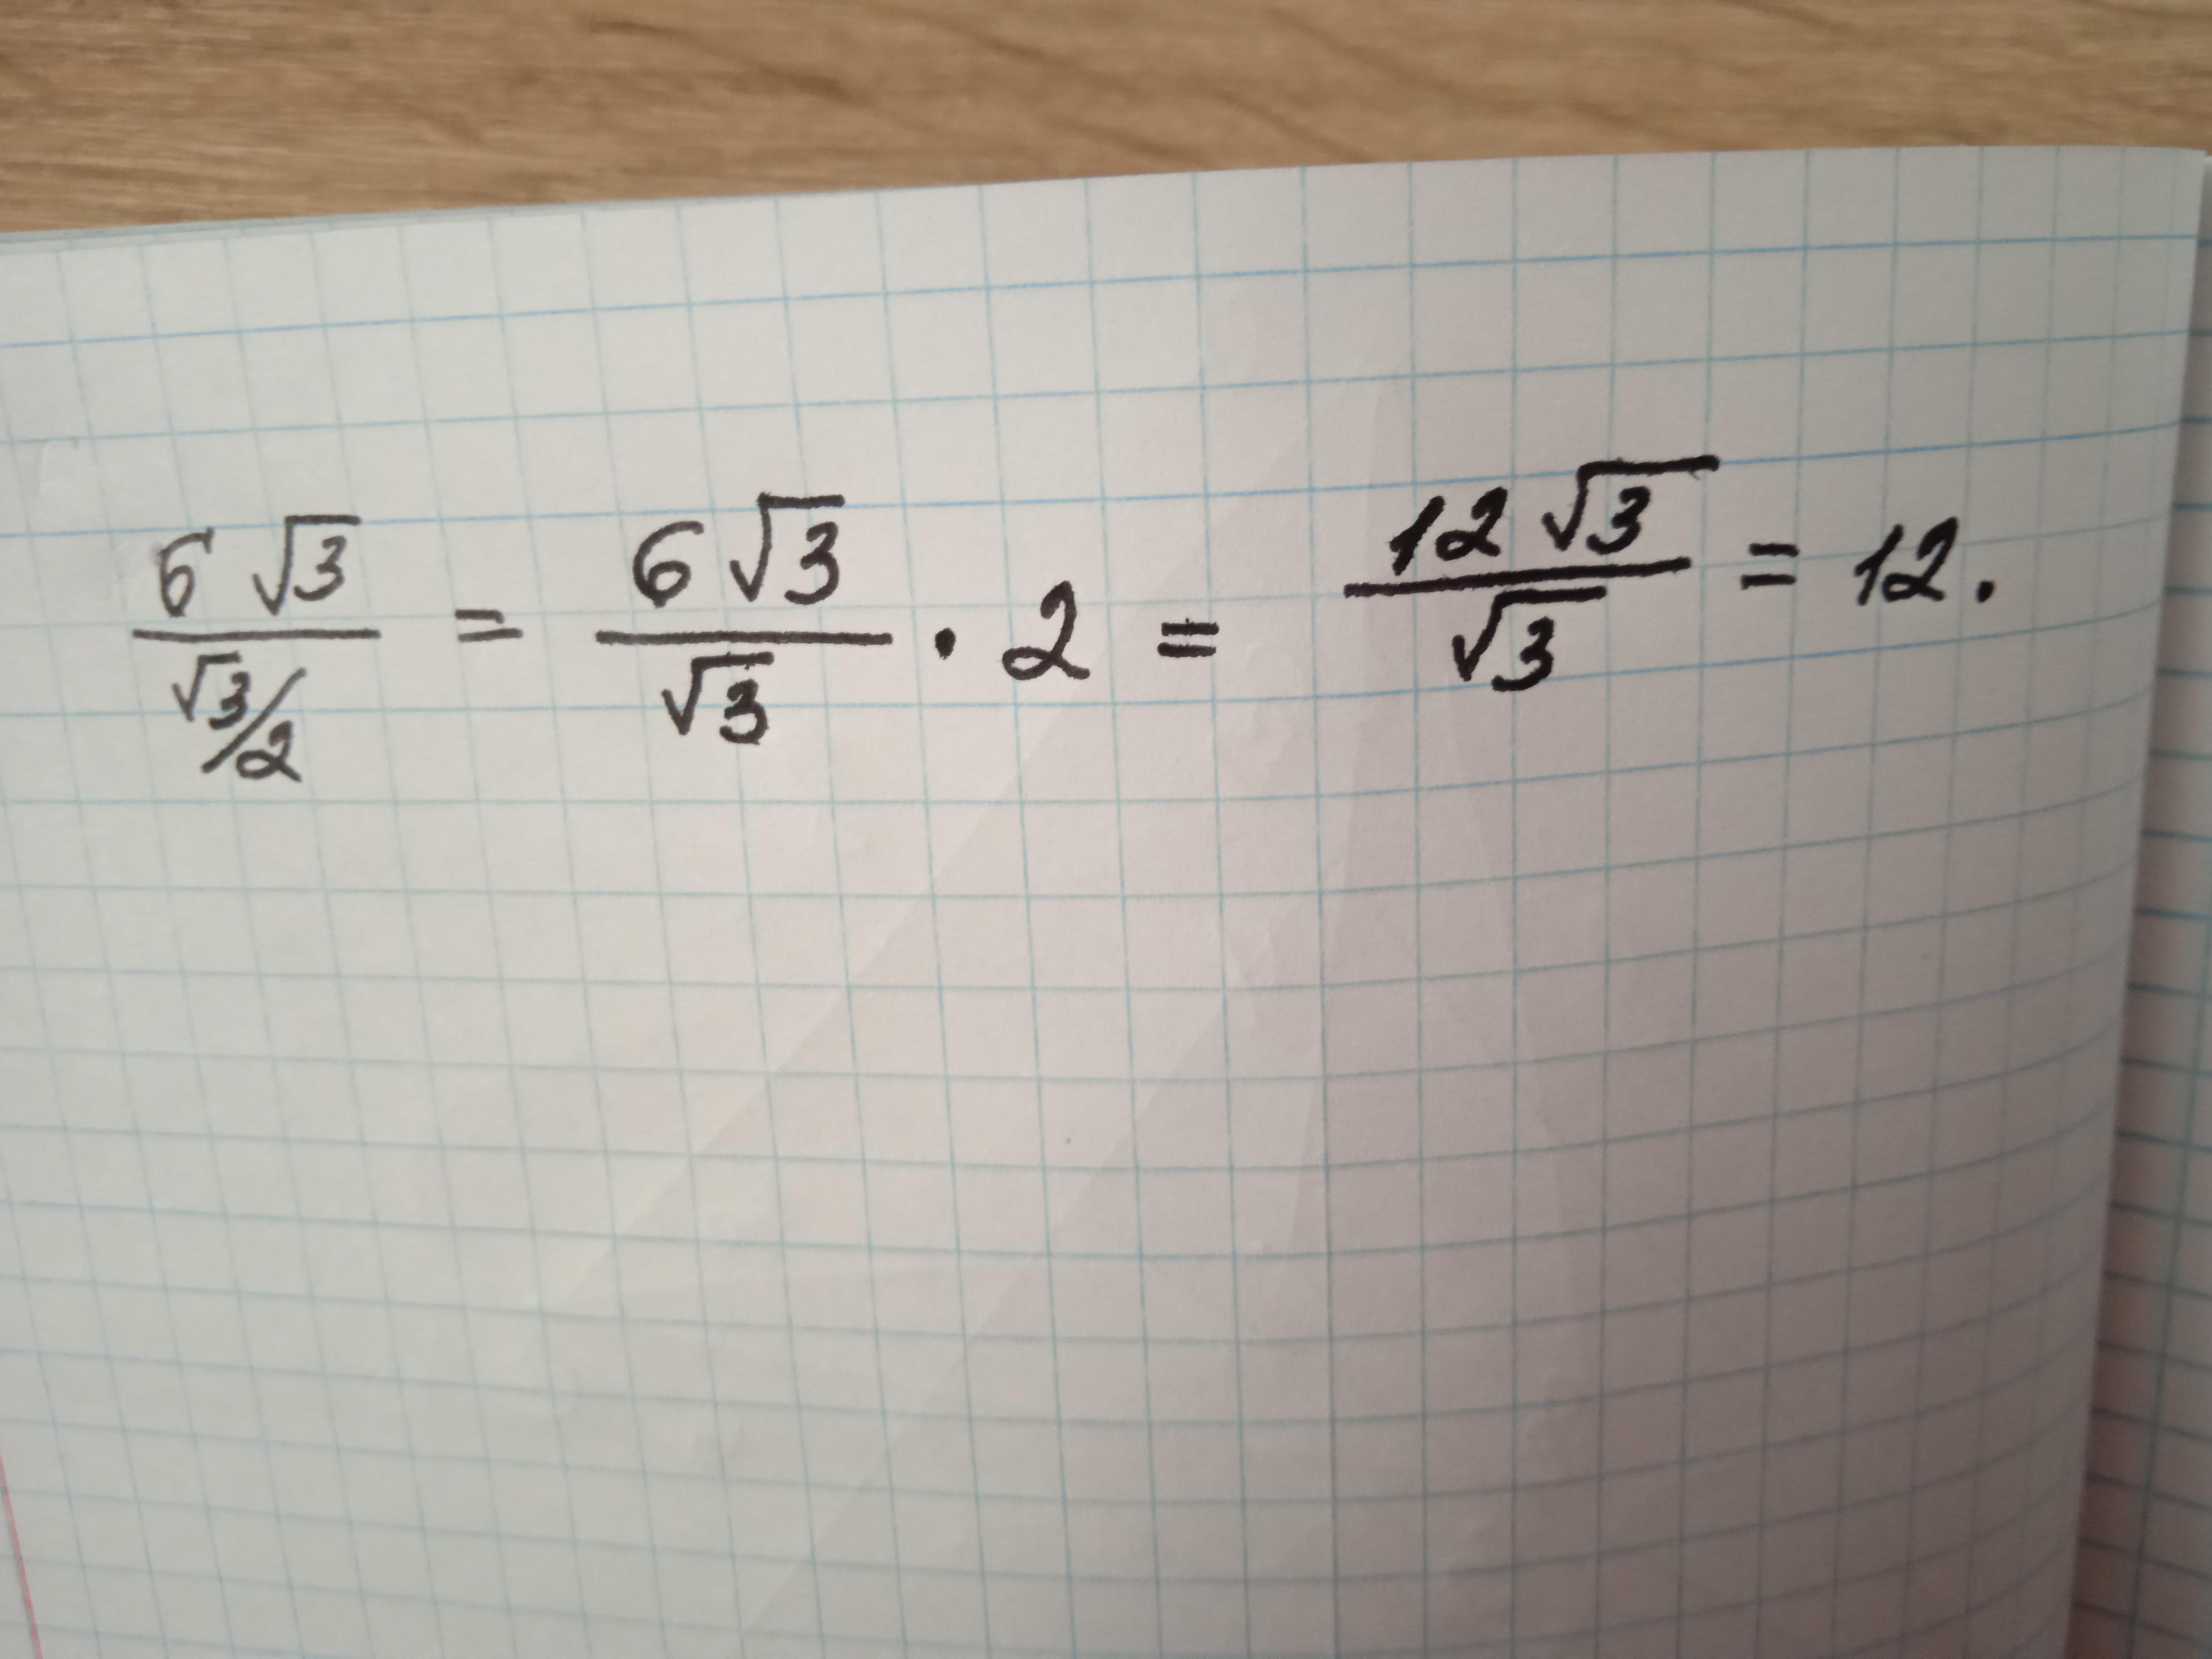 6√3 / (√3/2) = 6√3 / √3 · 2 = 12√3 / √3 = 12.